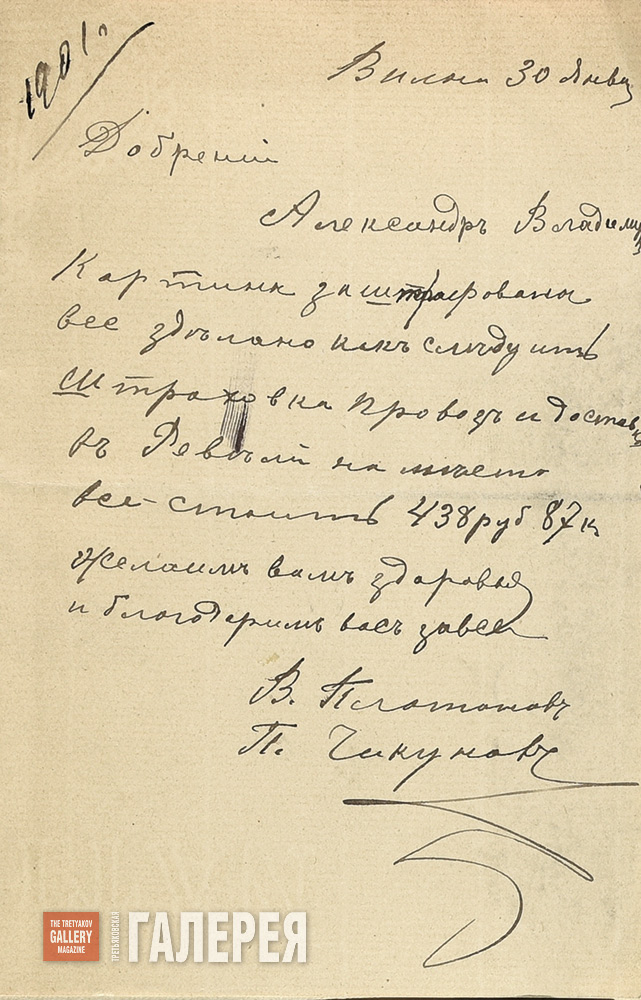 1901 г.
Вильна 30 Янва
Добрений
Александръ Владими
Картины заштрафованы
все здѣлано какъ слѣдуитъ
Штраховка провозъ и достав
въ Ревель на мѣсто
все-стоитъ 438 руб 87 к
желаимъ вамъ здоровья
и благодаримъ васъ завсе
В. Платоновъ
П. Чикуновъ
THE TRETYAKOV
GALLERY
MAGAZINE
ТРЕТЬЯКОВСКАЯ
ГАЛЕРЕЯ